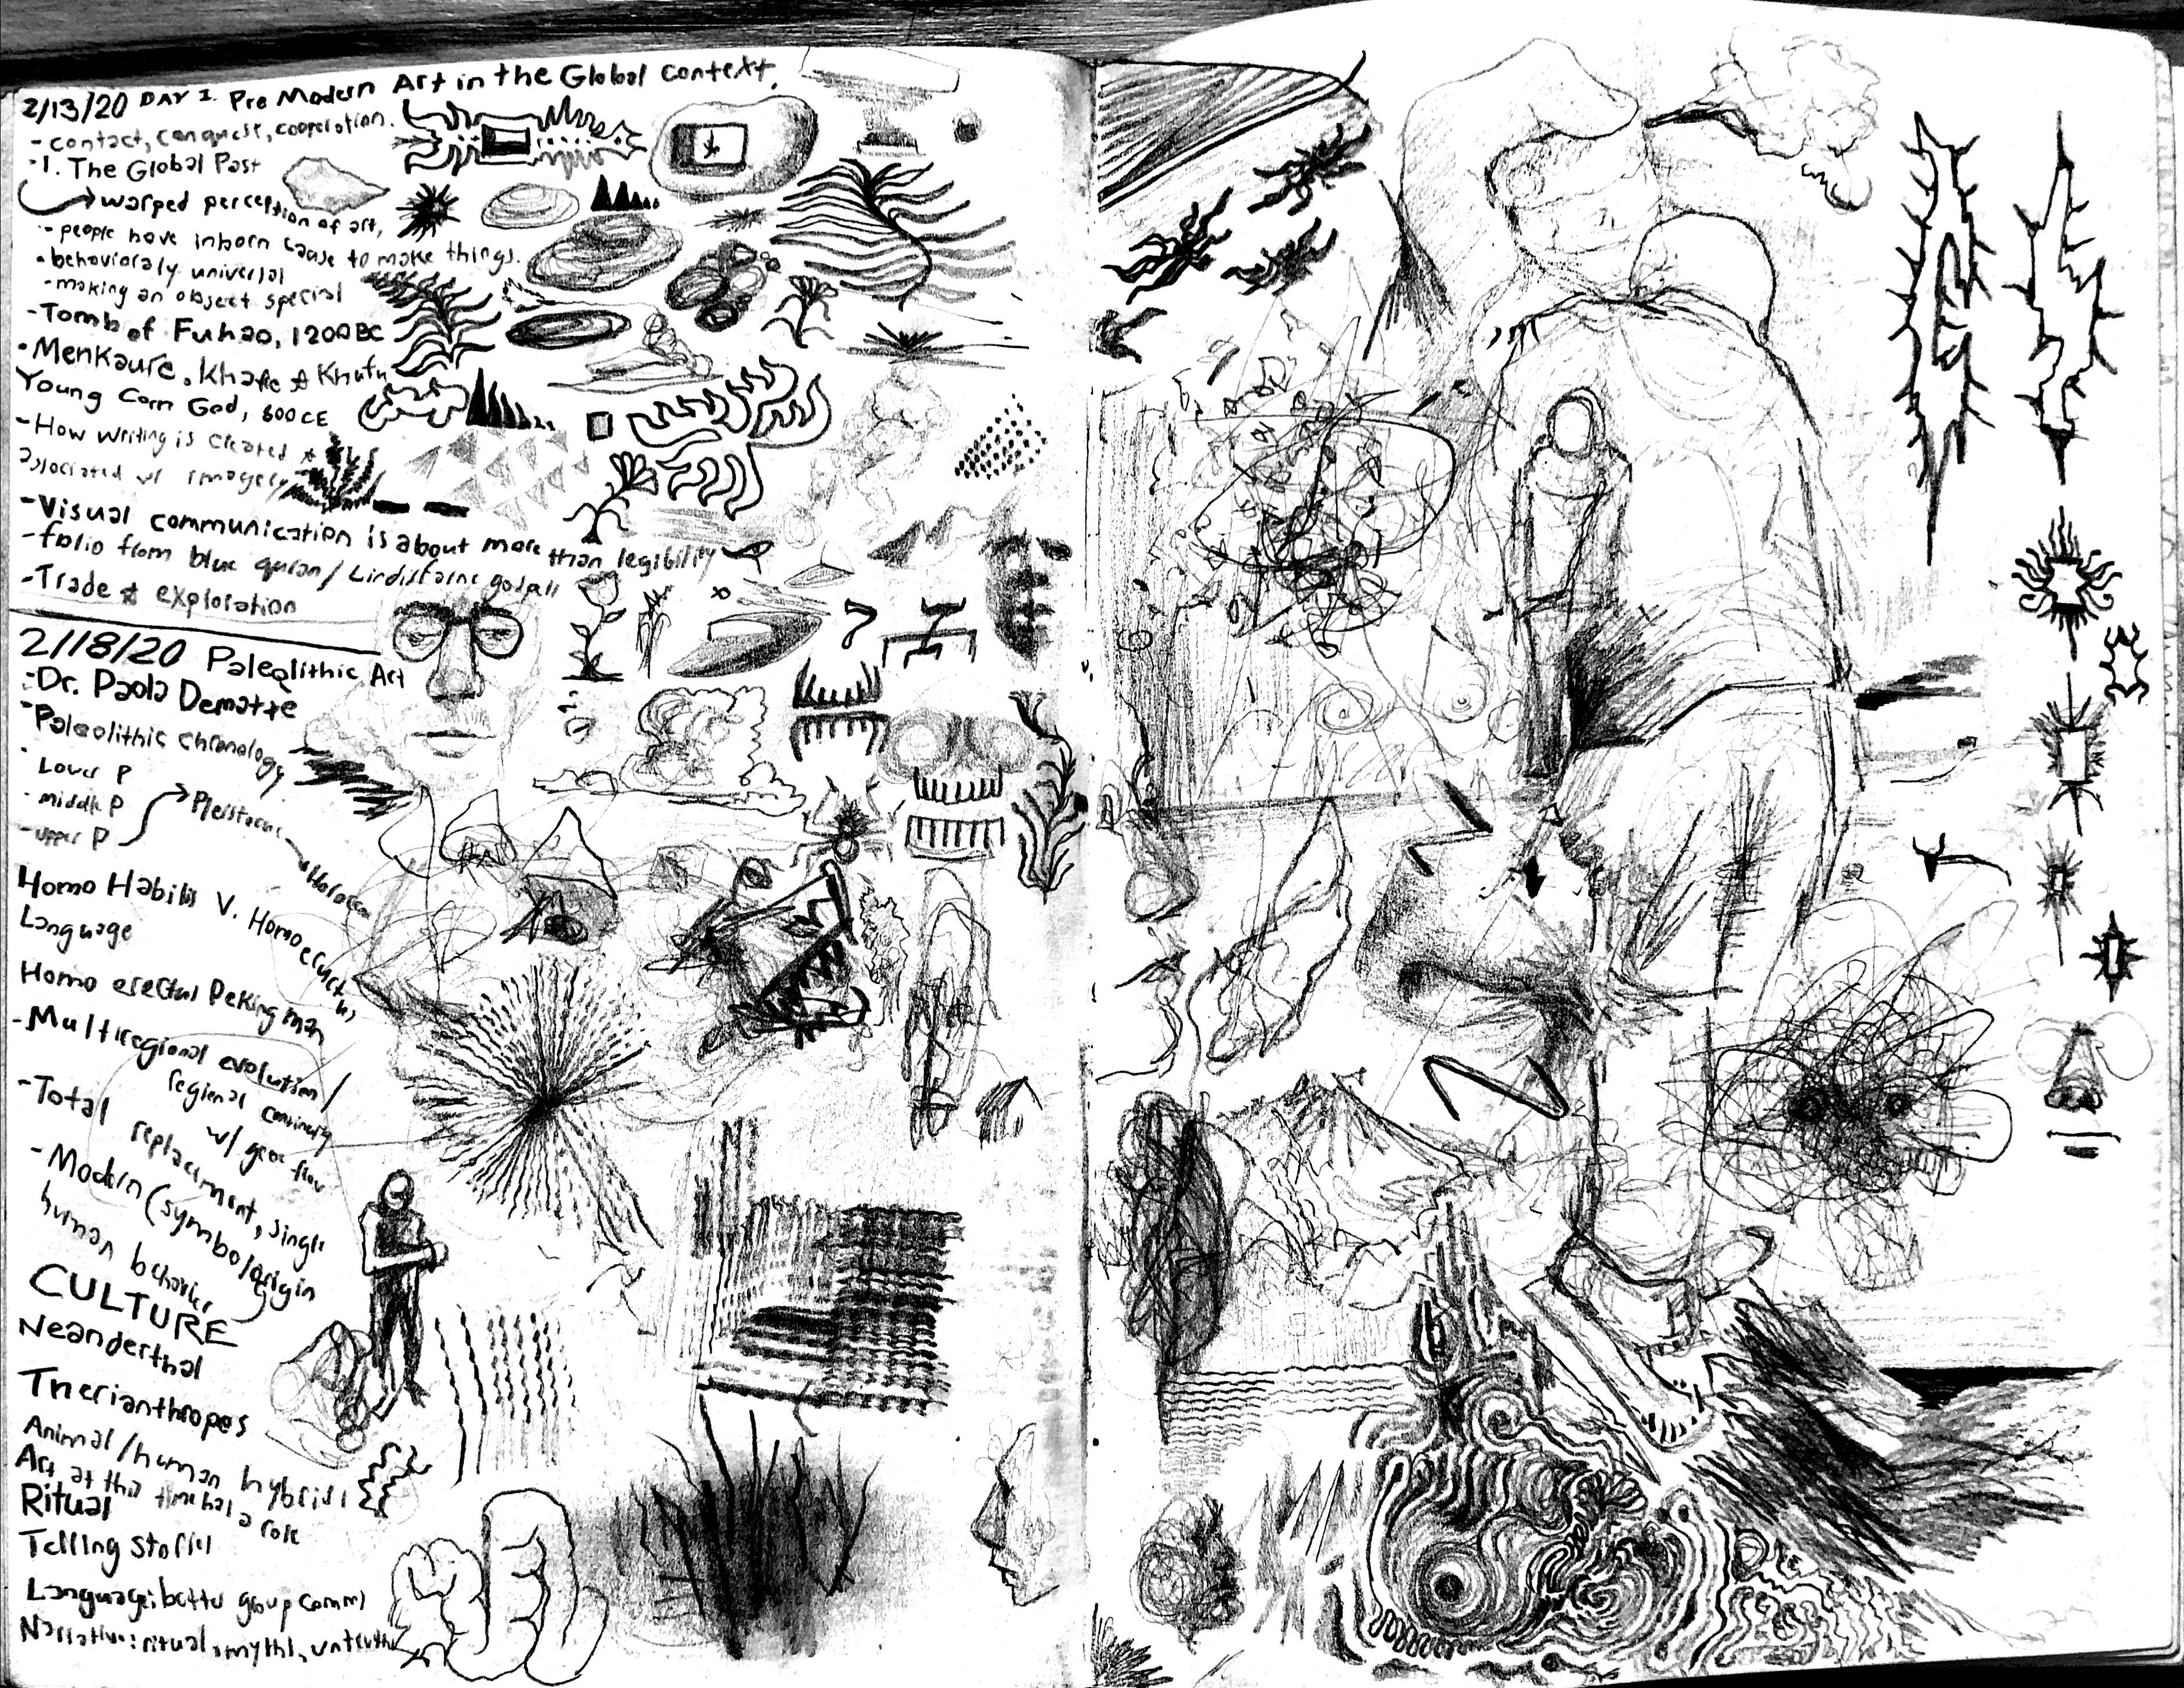 2/13/20 DAY 1. Pre Modern Art in the Global Context.
- contact, conquest, cooperation.
- 1. The Global Past
→ warped perception of art,
- people have inborn cause to make things.
• behavioraly universal
- making an object special
- Tomb of Fuhao, 1200 BC
• Menkaure, Khafre & Khufu
Young Corn God, 600 CE
- How writing is created &
associated w/ imagery
- Visual communication is about more than legibility
- folio from blue quran / Lindisfarne
- Trade & exploration
2/18/20 Paleolithic Art
- Dr. Paola Dematte
- Paleolithic chronology
• Lower P
• middle P
- upper P → Pleistocene → Holocene
Homo Habilis V. Homo
Language
Homo erectus Peking man
- Multiregional evolution /
regional continuity
w/ gene flow
- Total replacement, single
origin
- Modern (symbol
human behavior
CULTURE
Neanderthal
Therianthropes
Animal/human hybrids
Art at this time has a role
Ritual
Telling stories
Language: better group comm)
Narrative: ritual, myths,